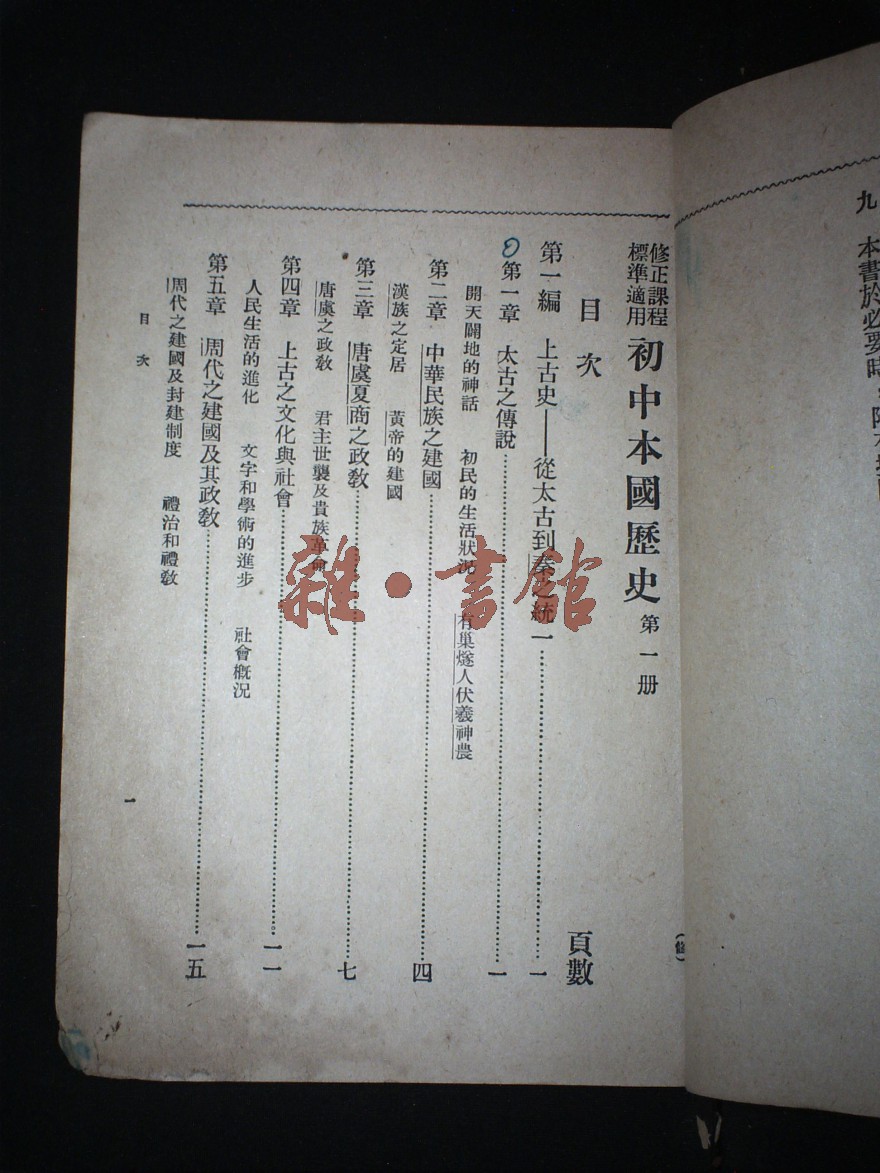 九　本書於必要時
修正課程
標準適用
初中本國歷史　第一册
目次
頁數
第一編　上古史——從太古到秦之統一……一
第一章　太古之傳說……一
開天闢地的神話　初民的生活狀況　有巢燧人伏羲神農
第二章　中華民族之建國……四
漢族之定居　黃帝的建國
第三章　唐虞夏商之政教……七
唐虞之政教　君主世襲及貴族革命
第四章　上古之文化與社會……一一
人民生活的進化　文字和學術的進步　社會概況
第五章　周代之建國及其政教……一五
周代之建國及封建制度　禮治和禮教
目次
一
雜·書館